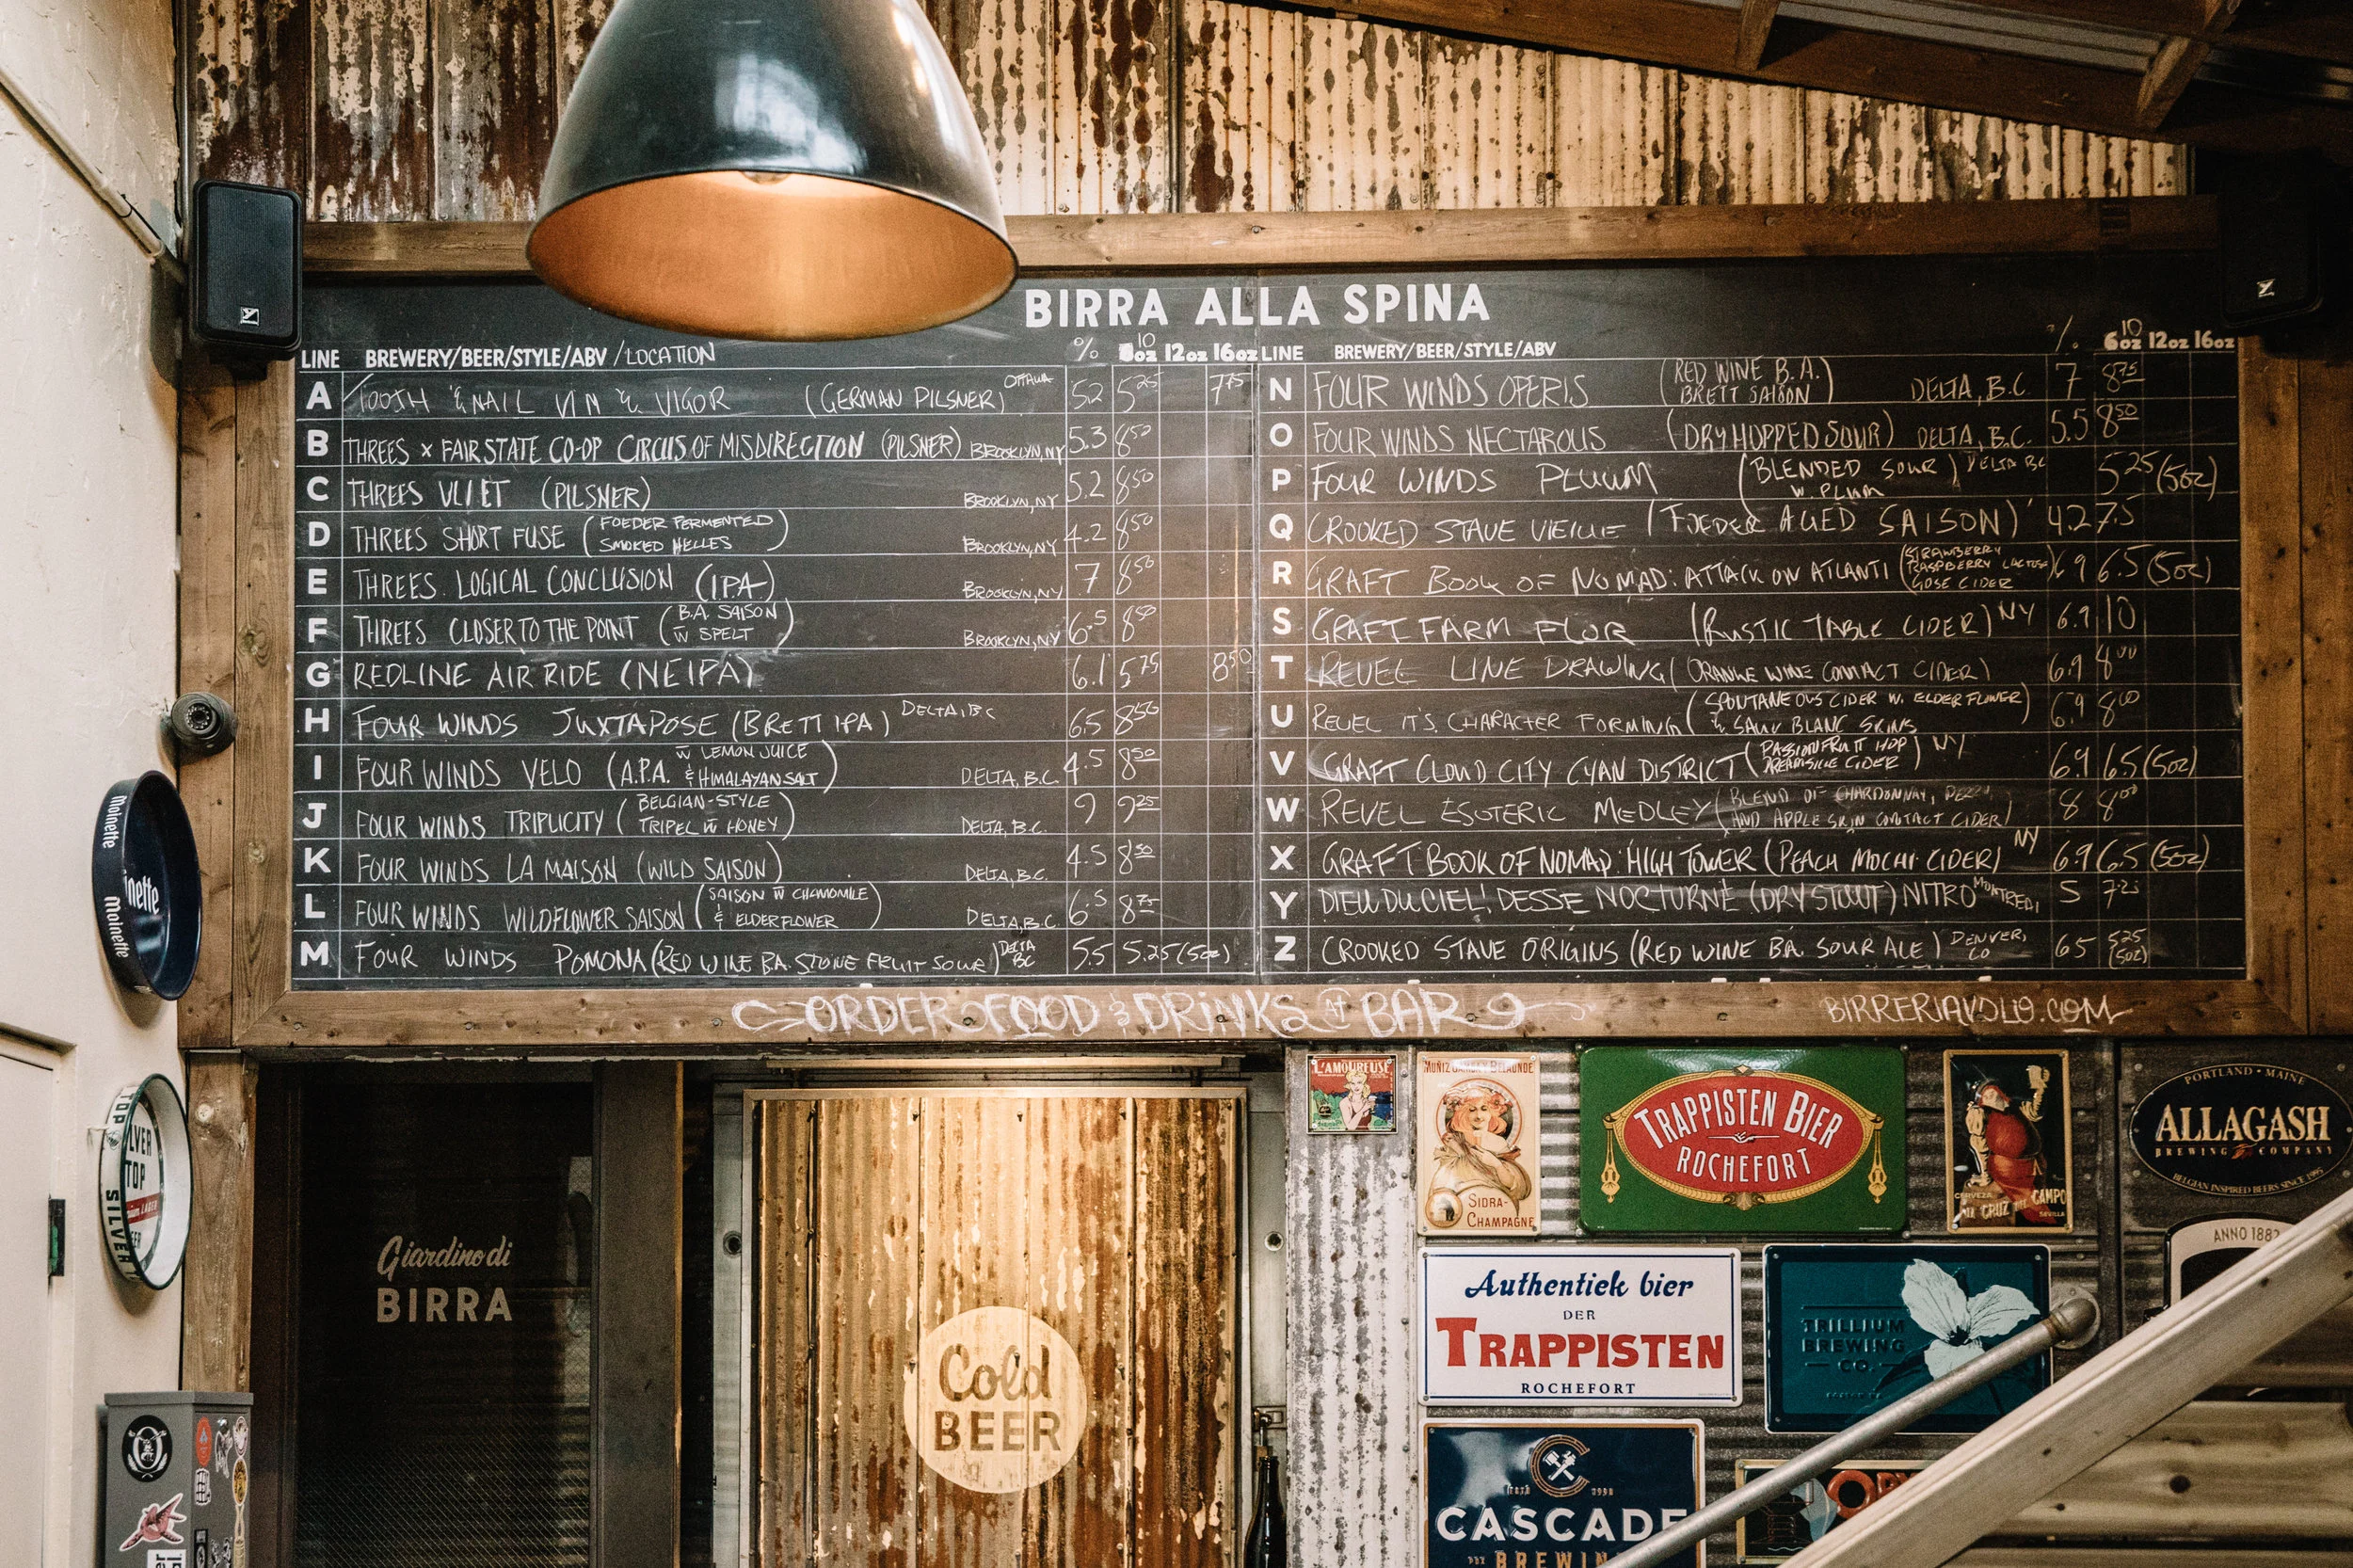 BIRRA ALLA SPINA
LINE BREWERY/BEER/STYLE/ABV /LOCATION % 10 oz 12oz 16oz
A TOOTH & NAIL VIM & VIGOR (GERMAN PILSNER) OTTAWA 5.2 5.25 7.75
B THREES x FAIR STATE CO-OP CIRCUS OF MISDIRECTION (PILSNER) BROOKLYN, NY 5.3 8.50
C THREES VLIET (PILSNER) BROOKLYN, NY 5.2 8.50
D THREES SHORT FUSE (FOEDER FERMENTED SMOKED HELLES) BROOKLYN, NY 4.2 8.50
E THREES LOGICAL CONCLUSION (IPA) BROOKLYN, NY 7 8.50
F THREES CLOSER TO THE POINT (B.A. SAISON W SPELT) BROOKLYN, NY 6.5 8.50
G REDLINE AIR RIDE (NEIPA) 6.1 5.75 8.50
H FOUR WINDS JUXTAPOSE (BRETT IPA) DELTA, BC 6.5 8.50
I FOUR WINDS VELO (A.P.A. W LEMON JUICE & HIMALAYAN SALT) DELTA, B.C. 4.5 8.50
J FOUR WINDS TRIPLICITY (BELGIAN-STYLE TRIPEL W HONEY) DELTA, B.C. 9 9.25
K FOUR WINDS LA MAISON (WILD SAISON) DELTA, B.C. 4.5 8.50
L FOUR WINDS WILDFLOWER SAISON (SAISON W CHAMOMILE & ELDERFLOWER) DELTA, B.C. 6.5 8.75
M FOUR WINDS POMONA (RED WINE B.A. STONE FRUIT SOUR) DELTA BC 5.5 5.25 (5oz)
LINE BREWERY/BEER/STYLE/ABV % 10 6oz 12oz 16oz
N FOUR WINDS OPERIS (RED WINE B.A. BRETT SAISON) DELTA, B.C. 7 8.75
O FOUR WINDS NECTAROUS (DRY HOPPED SOUR) DELTA, B.C. 5.5 8.50
P FOUR WINDS PLUUM (BLENDED SOUR W. PLUM) DELTA BC 5.25 (5oz)
Q CROOKED STAVE VIEILLE (FOEDER AGED SAISON) 4.2 7.5
R GRAFT BOOK OF NOMAD: ATTACK ON ATLANTI (STRAWBERRY RASPBERRY LACTOSE GOSE CIDER) 6.9 6.5 (5oz)
S GRAFT FARM FLOR (RUSTIC TABLE CIDER) NY 6.9 10
T REVEL LINE DRAWING (ORANGE WINE CONTACT CIDER) 6.9 8.00
U REVEL IT'S CHARACTER FORMING (SPONTANEOUS CIDER W. ELDERFLOWER & SAUV BLANC SKINS) 6.9 8.00
V GRAFT CLOUD CITY CYAN DISTRICT (PASSIONFRUIT HOP CREAMSICLE CIDER) NY 6.9 6.5 (5oz)
W REVEL ESOTERIC MEDLEY (BLEND OF CHARDONNAY, AND APPLE SKIN CONTACT CIDER) 8 8.00
X GRAFT BOOK OF NOMAD: HIGH TOWER (PEACH MOCHI CIDER) NY 6.9 6.5 (5oz)
Y DIEU DU CIEL! DESSE NOCTURNE (DRY STOUT) NITRO MONTREAL 5 7.25
Z CROOKED STAVE ORIGINS (RED WINE B.A. SOUR ALE) DENVER, CO 6.5 5.25 (5oz)
ORDER FOOD & DRINKS AT BAR
BIRRERIAVOLO.COM
Moinette
Moinette
nette
TOP
LVER
TOP
SILVER
Giardino di
BIRRA
Cold
BEER
L'AMOUREUSE
SIDRA-
CHAMPAGNE
TRAPPISTEN BIER
ROCHEFORT
CERVEZA
CRUZ DEL CAMPO
SEVILLA
PORTLAND • MAINE
ALLAGASH
BREWING COMPANY
BELGIAN INSPIRED BEERS SINCE 1995
ANNO 1882
Authentiek bier
DER
TRAPPISTEN
ROCHEFORT
TRILLIUM
BREWING
CO.
CASCADE
BREWIN